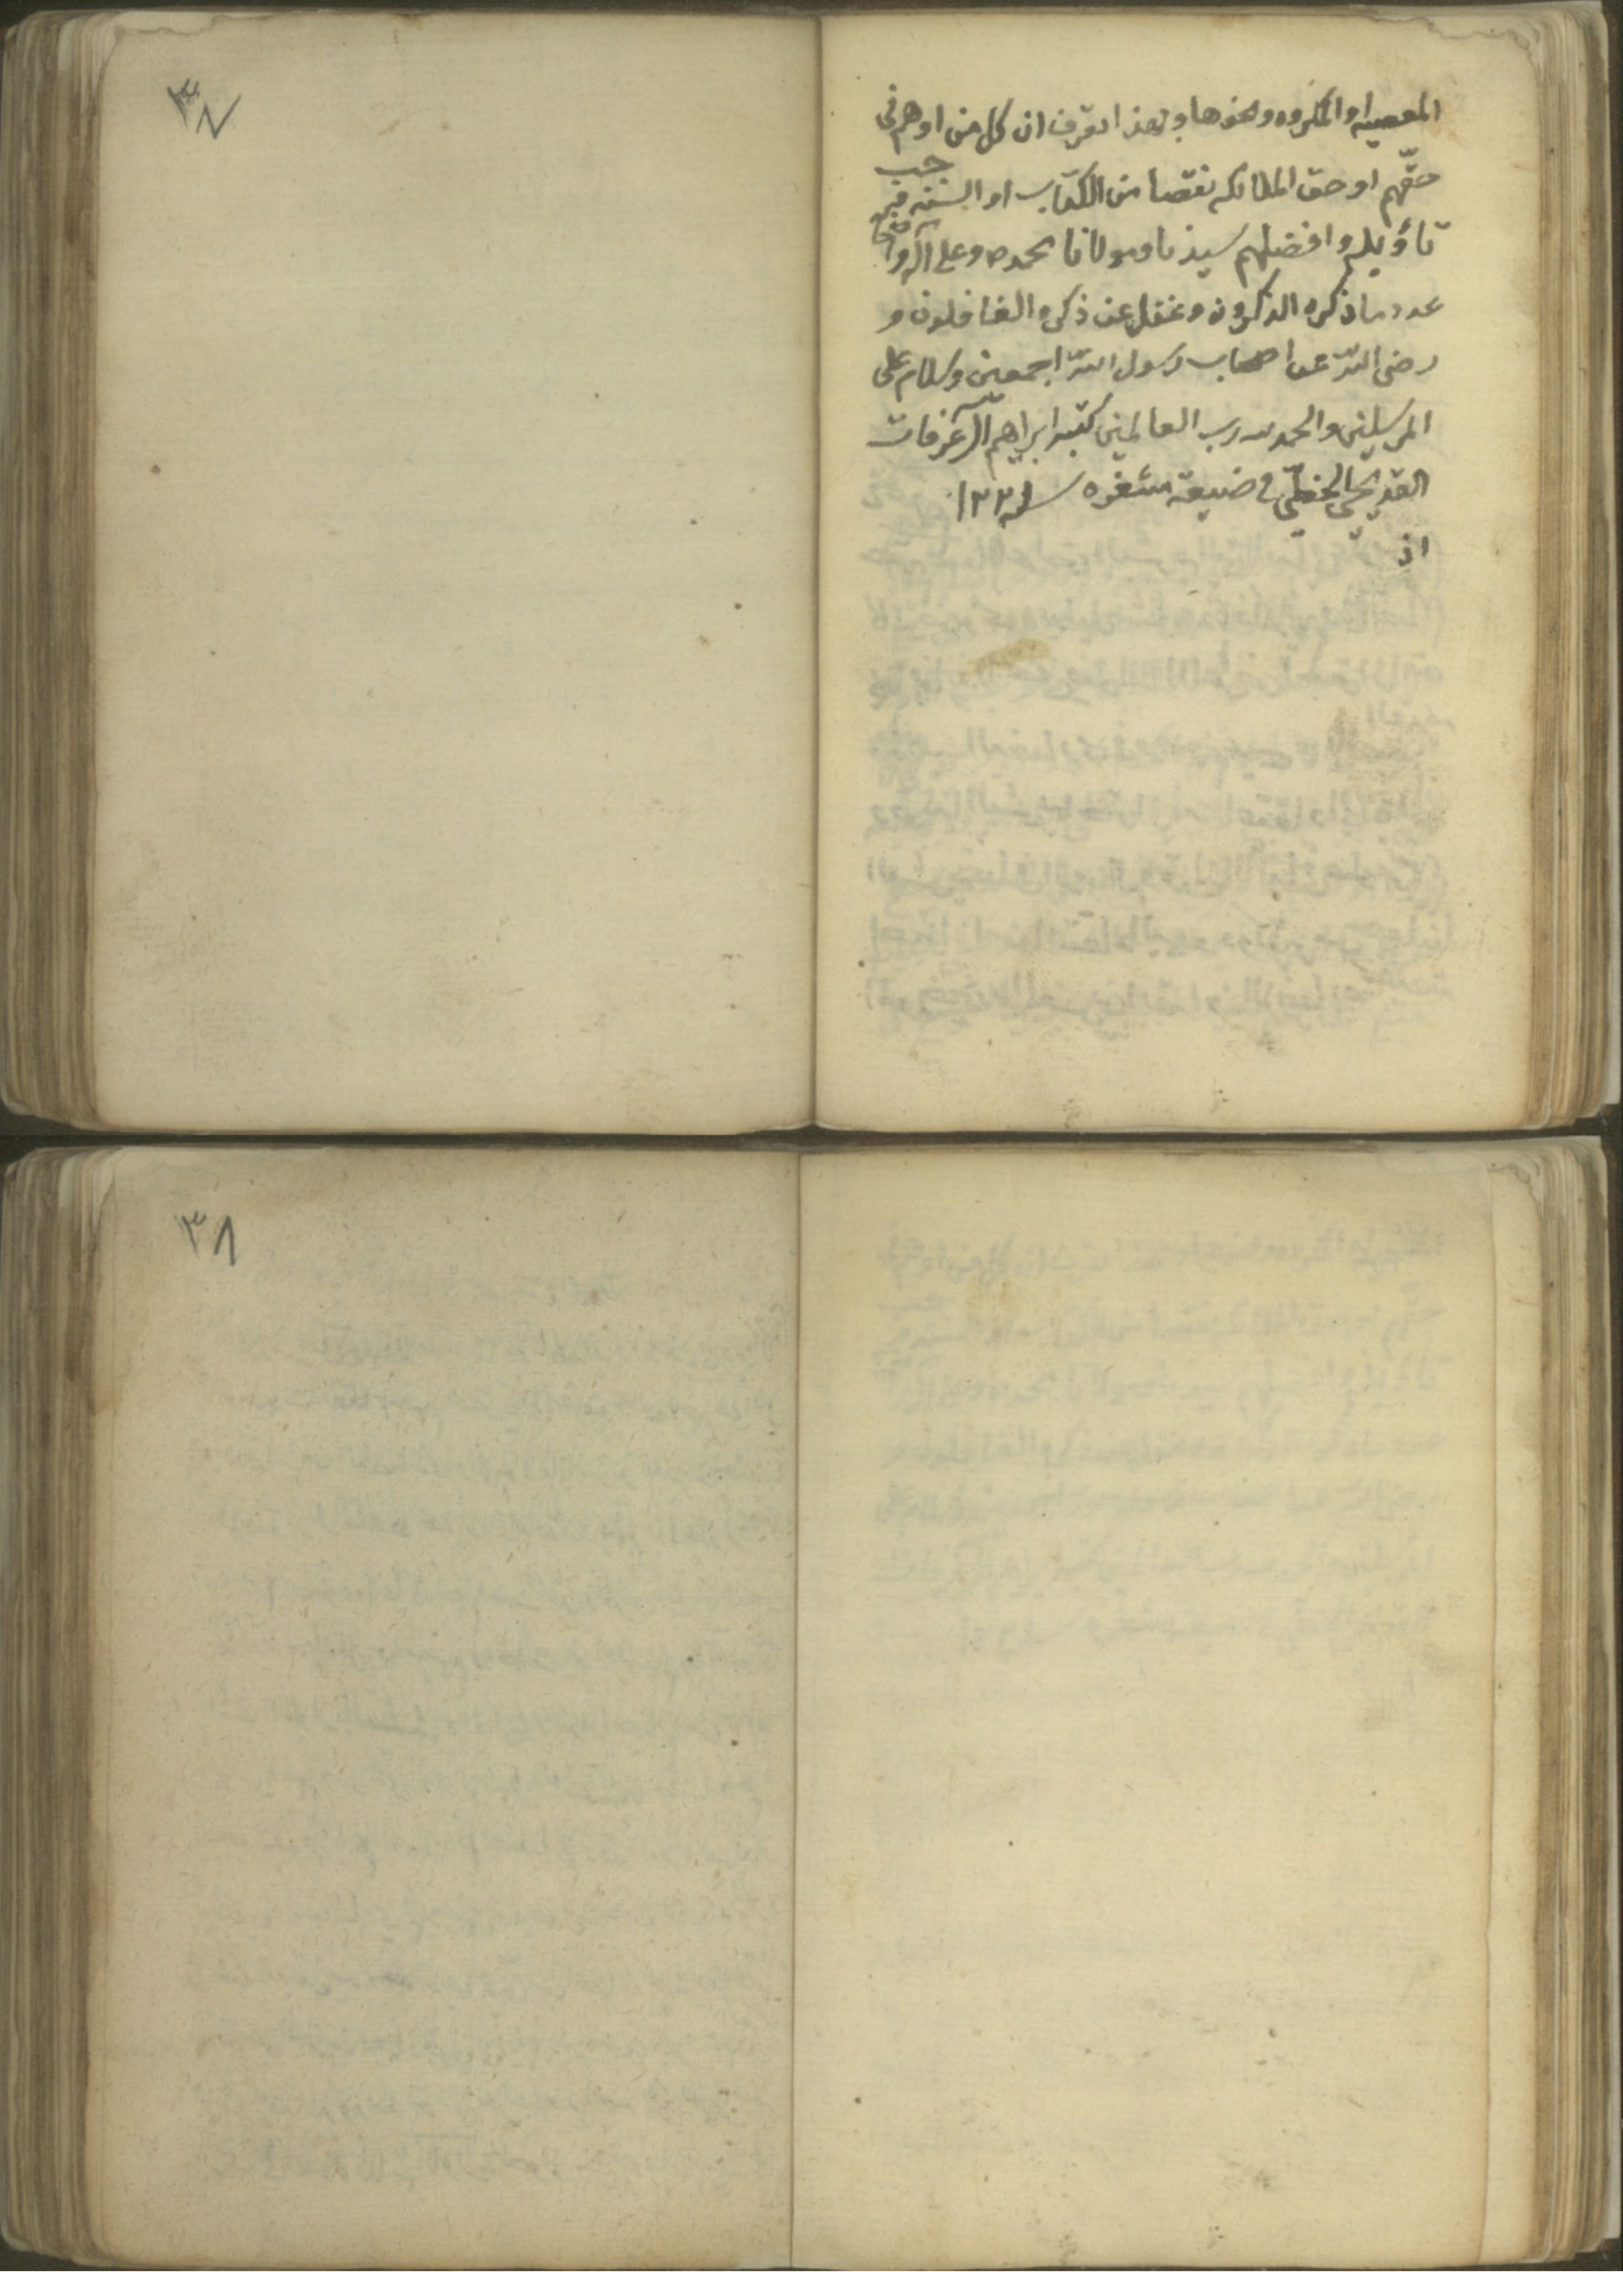 المعصيه او المكروه ونحوها وبهذا تعرف ان كل من اوهم في
حقّهم او حق الملائكه نقصا من الكتاب او السنه فيجب
تاؤيله وافضلهم سيدنا ومولانا محمد ص وعلى آله
عدد ما ذكره الذكرون وغفل عن ذكره الغافلون و
رضى الله عن اصحاب رسول الله اجمعين وسلام على
المرسلين والحمد لله رب العالمين كتبه ابراهيم
في ضيعة سنه ١٣٣١
اذ
٣٧
٣٨